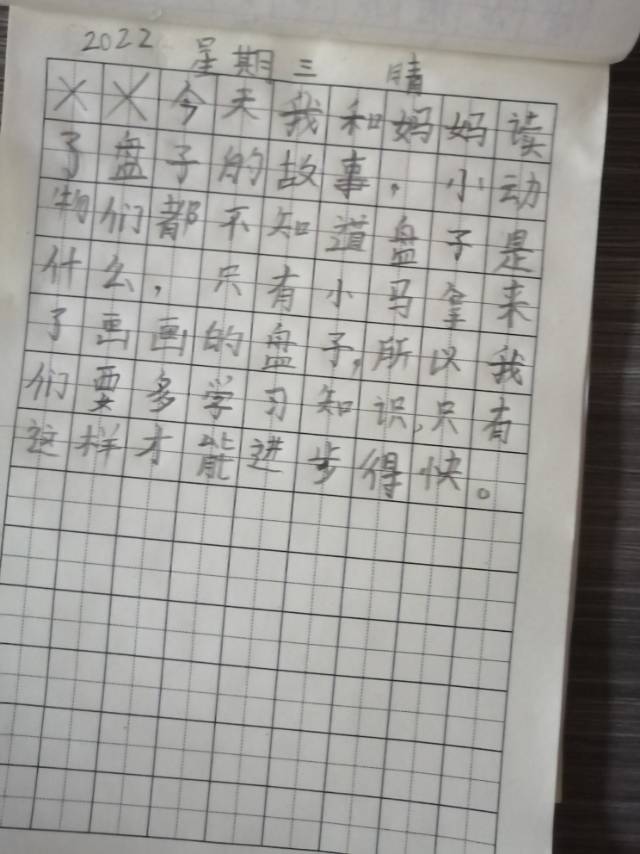 2022 星期三 晴
××今天我和妈妈读
了盘子的故事，小动
物们都不知道盘子是
什么，只有小马拿来
了画画的盘子,所以我
们要多学习知识,只有
这样才能进步得快。